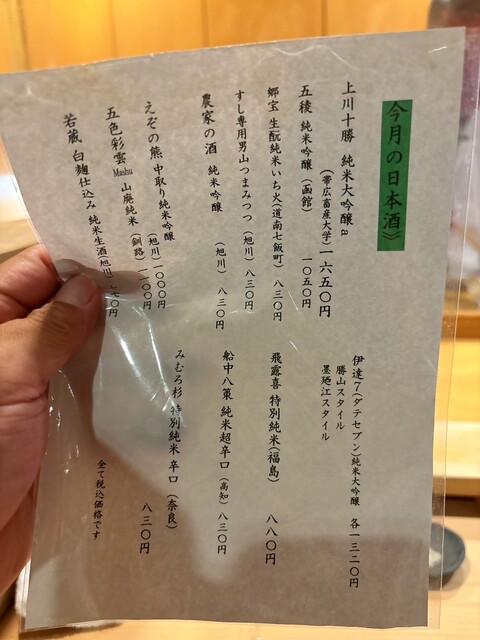 今月の日本酒》
上川十勝 純米大吟醸a
(帯広畜産大学)一六五〇円
五稜 純米吟醸(函館) 一〇五〇円
郷宝 生酛純米いち火(道南七飯町) 八三〇円
すし専用男山つまみつつ(旭川) 八三〇円
農家の酒 純米吟醸 (旭川) 八三〇円
えぞの熊 中取り純米吟醸 (旭川)一〇〇〇円
五色彩雲 Mashu 山廃純米(釧路)一一〇〇円
若蔵 白麹仕込み 純米生酒(旭川)
伊達7(ダテセブン)純米大吟醸 各一三二〇円
勝山スタイル
墨廼江スタイル
飛露喜 特別純米(福島) 八八〇円
船中八策 純米超辛口(高知)八三〇円
みむろ杉 特別純米 辛口(奈良) 八三〇円
全て税込価格です